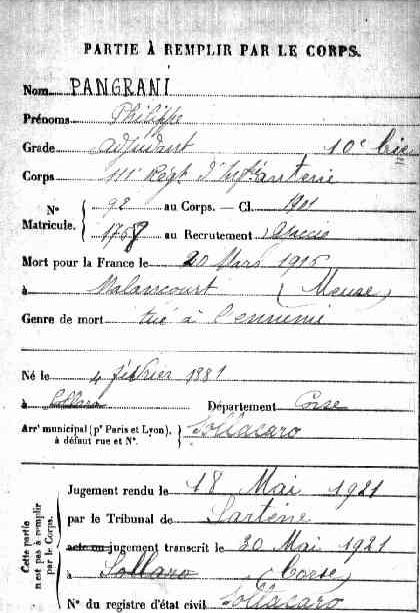 PARTIE À REMPLIR PAR LE CORPS.
Nom PANGRANI
Prénoms Philippe
Grade adjudant 10e Cie
Corps 111e Régt d'Infanterie
N° 92 au Corps. — Cl. 1901
Matricule. 1758 au Recrutement Ajaccio
Mort pour la France le 20 Mars 1916
à Malancourt (Meuse)
Genre de mort tué à l'ennemi
Né le 4 février 1881
à Sollaro Département Corse
Arrt municipal (pr Paris et Lyon), à défaut rue et N°. Sollacaro
Cette partie n'est pas à remplir par le Corps.
Jugement rendu le 18 Mai 1921
par le Tribunal de Sartène
acte ou jugement transcrit le 20 Mai 1921
à Sollaro Corse
N° du registre d'état civil Sollacaro